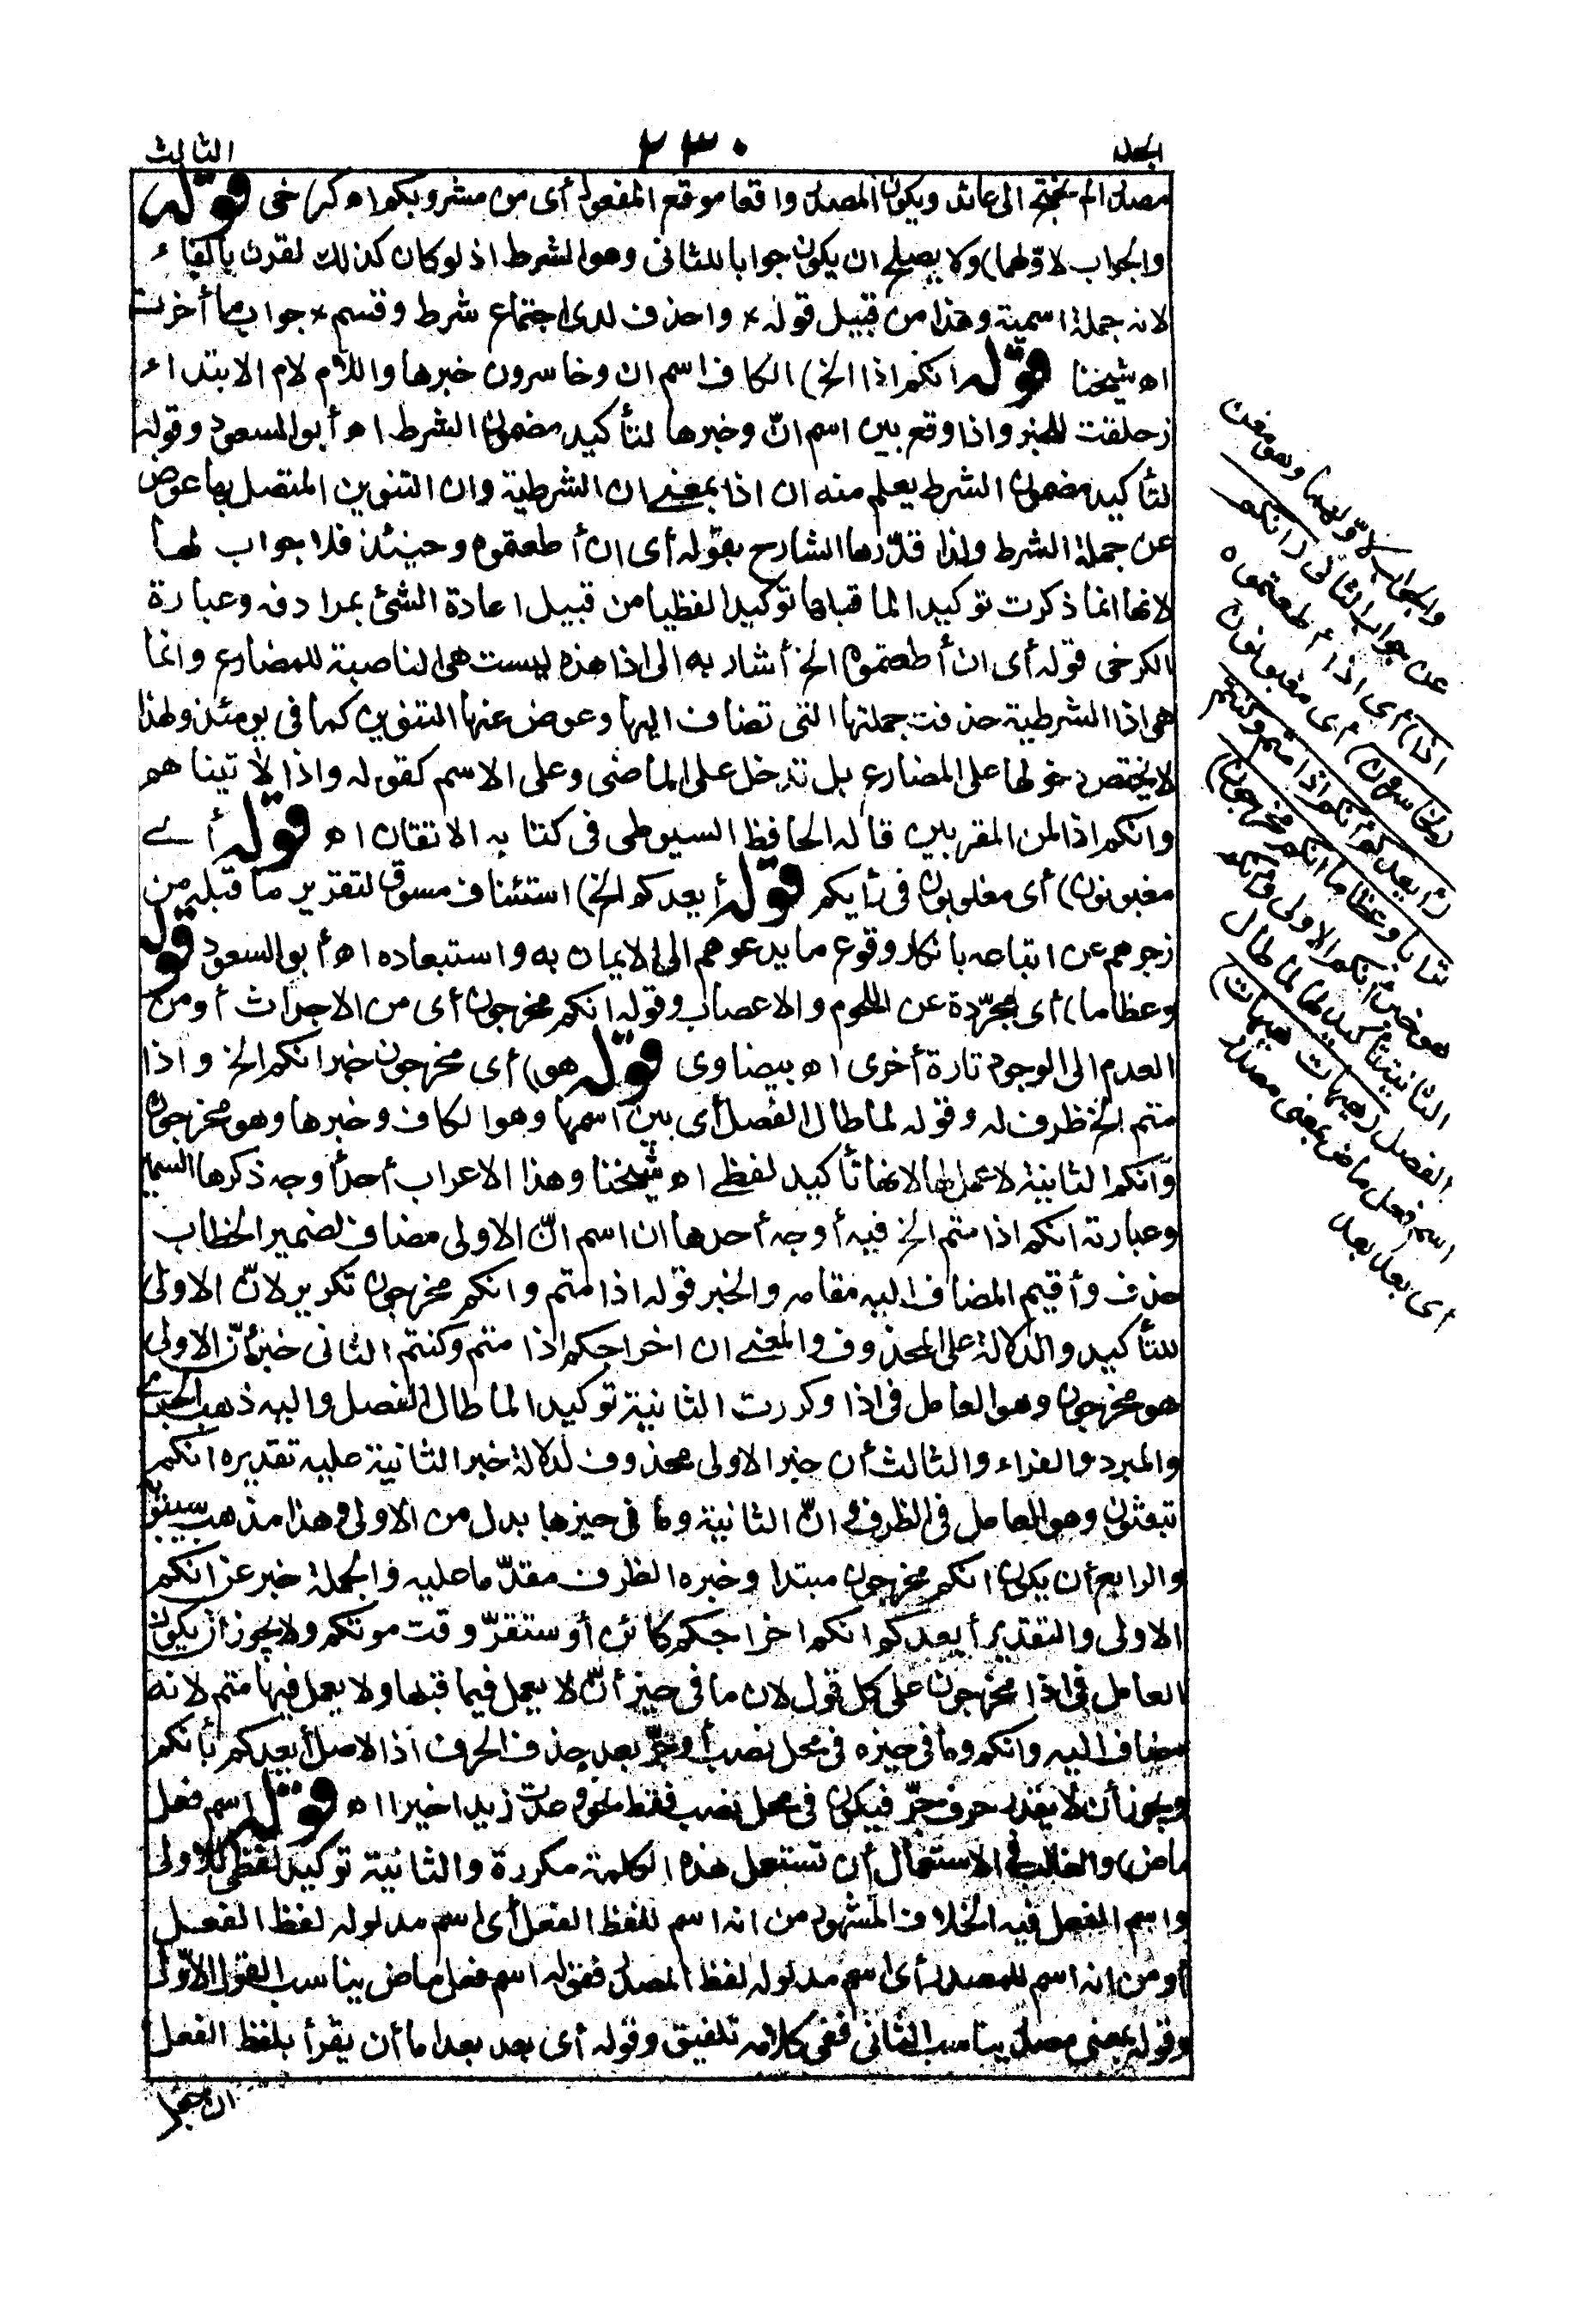 الجلد
٢٣٠
الثالث
مصدرا لم يحتج الى عائد ويكون المصدر واقعا موقع المفعول أى من مشروبكم اه كرخى قوله
والجواب لاوّلهما) ولا يصلح ان يكون جوابا للثانى وهو الشرط اذ لو كان كذلك لقرن بالفاء
لانه جملة اسمية وهذا من قبيل قوله * واحذف لدى اجتماع شرط وقسم * جواب ما أخرت
اه شيخنا قوله انكم اذا الخ) الكاف اسم ان وخاسرون خبرها واللام لام الابتداء
زحلقت للخبر واذا وقع بين اسم انّ وخبرها لتأكيد مضمون الشرط اه أبو السعود وقوله
لتأكيد مضمون الشرط يعلم منه ان اذا بمعنى ان الشرطية وان التنوين المتصل بها عوض
عن جملة الشرط ولذا قدّرها الشارح بقوله أى ان أطعتموه وحينئذ فلا جواب لها
لانها انما ذكرت توكيدا لما قبلها توكيدا لفظيا من قبيل اعادة الشئ بمرادفه وعبارة
الكرخى قوله أى ان أطعتموه الخ أشار به الى اذا هذه ليست هى الناصبة للمضارع وانما
هى اذا الشرطية حذفت جملتها التى تضاف اليها وعوض عنها التنوين كما فى يومئذ ولهذا
لا يختص دخولها على المضارع بل تدخل على الماضى وعلى الاسم كقوله واذا لآتيناهم
وانكم اذا لمن المقربين قاله الحافظ السيوطى فى كتابه الاتقان اه قوله أى
مغبونون) أى مغلوبون فى رأيكم قوله أيعدكم الخ) استئناف مسوق لتقرير ما قبله من
زجرهم عن اتباعه بانكار وقوع ما يدعوهم الى الايمان به واستبعاده اه أبو السعود قوله
وعظاما) أى مجرّدة عن اللحوم والاعصاب وقوله انكم مخرجون أى من الاجداث أو من
العدم الى الوجود تارة أخرى اه بيضاوى قوله هو) أى مخرجون خبر انكم الخ واذا
متم الخ ظرف له وقوله لما طال الفصل أى بين اسمها وهو الكاف وخبرها وهو مخرجون
وانكم الثانية لا عمل لها لانها تأكيد لفظى اه شيخنا وهذا الاعراب أحد أوجه ذكرها السمين
وعبارته انكم اذا متم الخ فيه أوجه أحدها ان اسم انّ الاولى مضاف لضمير الخطاب
حذف وأقيم المضاف اليه مقامه والخبر قوله اذا متم وانكم مخرجون تكرير لانّ الاولى
للتأكيد والدلالة على المحذوف والمعنى ان اخراجكم اذا متم وكنتم الثانى خبر أنّ الاولى
هو مخرجون وهو العامل فى اذا وكررت الثانية توكيدا لما طال الفصل واليه ذهب الجرمى
والمبرد والفراء والثالث أن خبر الاولى محذوف لدلالة خبر الثانية عليه تقديره انكم
تبعثون وهو العامل فى الظرف وانّ الثانية وما فى حيزها بدل من الاولى وهذا مذهب سيبويه
والرابع أن يكون انكم مخرجون مبتدا وخبره الظرف مقدّما عليه والجملة خبر عن انكم
الاولى والتقدير أيعدكم انكم اخراجكم كائن أو مستقرّ وقت موتكم ولا يجوز أن يكون
العامل فى اذا مخرجون على كل قول لان ما فى حيز أنّ لا يعمل فيما قبلها ولا يعمل فيها متم لانه
مضاف اليه وانكم وما فى حيزه فى محل نصب أو جرّ بعد حذف الحرف اذ الاصل أيعدكم بأنكم
ويجوز أن لا يقدر حرف جرّ فيكون فى محل نصب فقط نحو وعدت زيدا خيرا اه قوله اسم فعل
ماض) والغالب فى الاستعمال أن تستعمل هذه الكلمة مكررة والثانية توكيد لفظى للاولى
واسم الفعل فيه الخلاف المشهور من انه اسم للفظ الفعل أى اسم مدلوله لفظ الفعل
أو من انه اسم للمصدر أى اسم مدلوله لفظ المصدر فقوله اسم فعل ماض يناسب القول الاوّل
وقوله بمعنى مصدر يناسب الثانى ففى كلامه تلفيق وقوله أى بعد بعد اما أن يقرأ بلفظ الفعل
والجواب لاوّلهما وهو مغن
عن جواب الثانى (انكم
اذا) أى اذا أطعتموه
(لخاسرون) أى مغبونون
(أيعدكم أنكم اذا متم وكنتم
ترابا وعظاما انكم مخرجون)
هو خبر أنكم الاولى وأنكم
الثانية تأكيد لها لما طال
الفصل (هيهات هيهات)
اسم فعل ماض بمعنى مصدر
أى بعد بعد